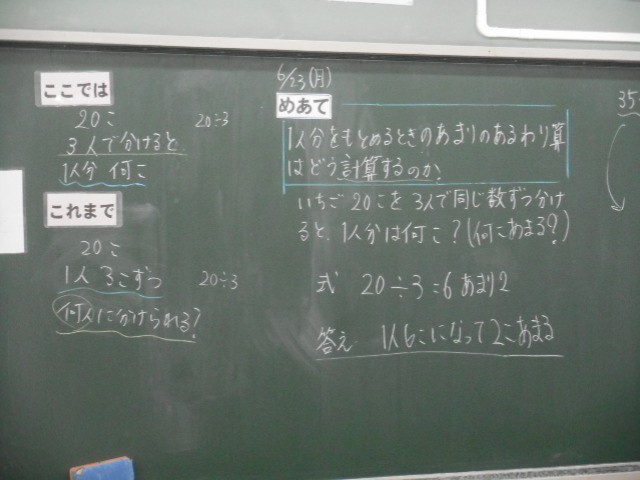 ここでは
20こ 20÷3
3人で分けると
1人分 何こ
これまで
20こ
1人 3こずつ 20÷3
何人に分けられる?
6/23(月)
めあて
1人分をもとめるときのあまりのあるわり算
はどう計算するのか。
いちご 20こを 3人で同じ数ずつ分け
ると、1人分は何こ?(何こあまる?)
式 20÷3=6あまり2
答え 1人6こになって2こあまる
35